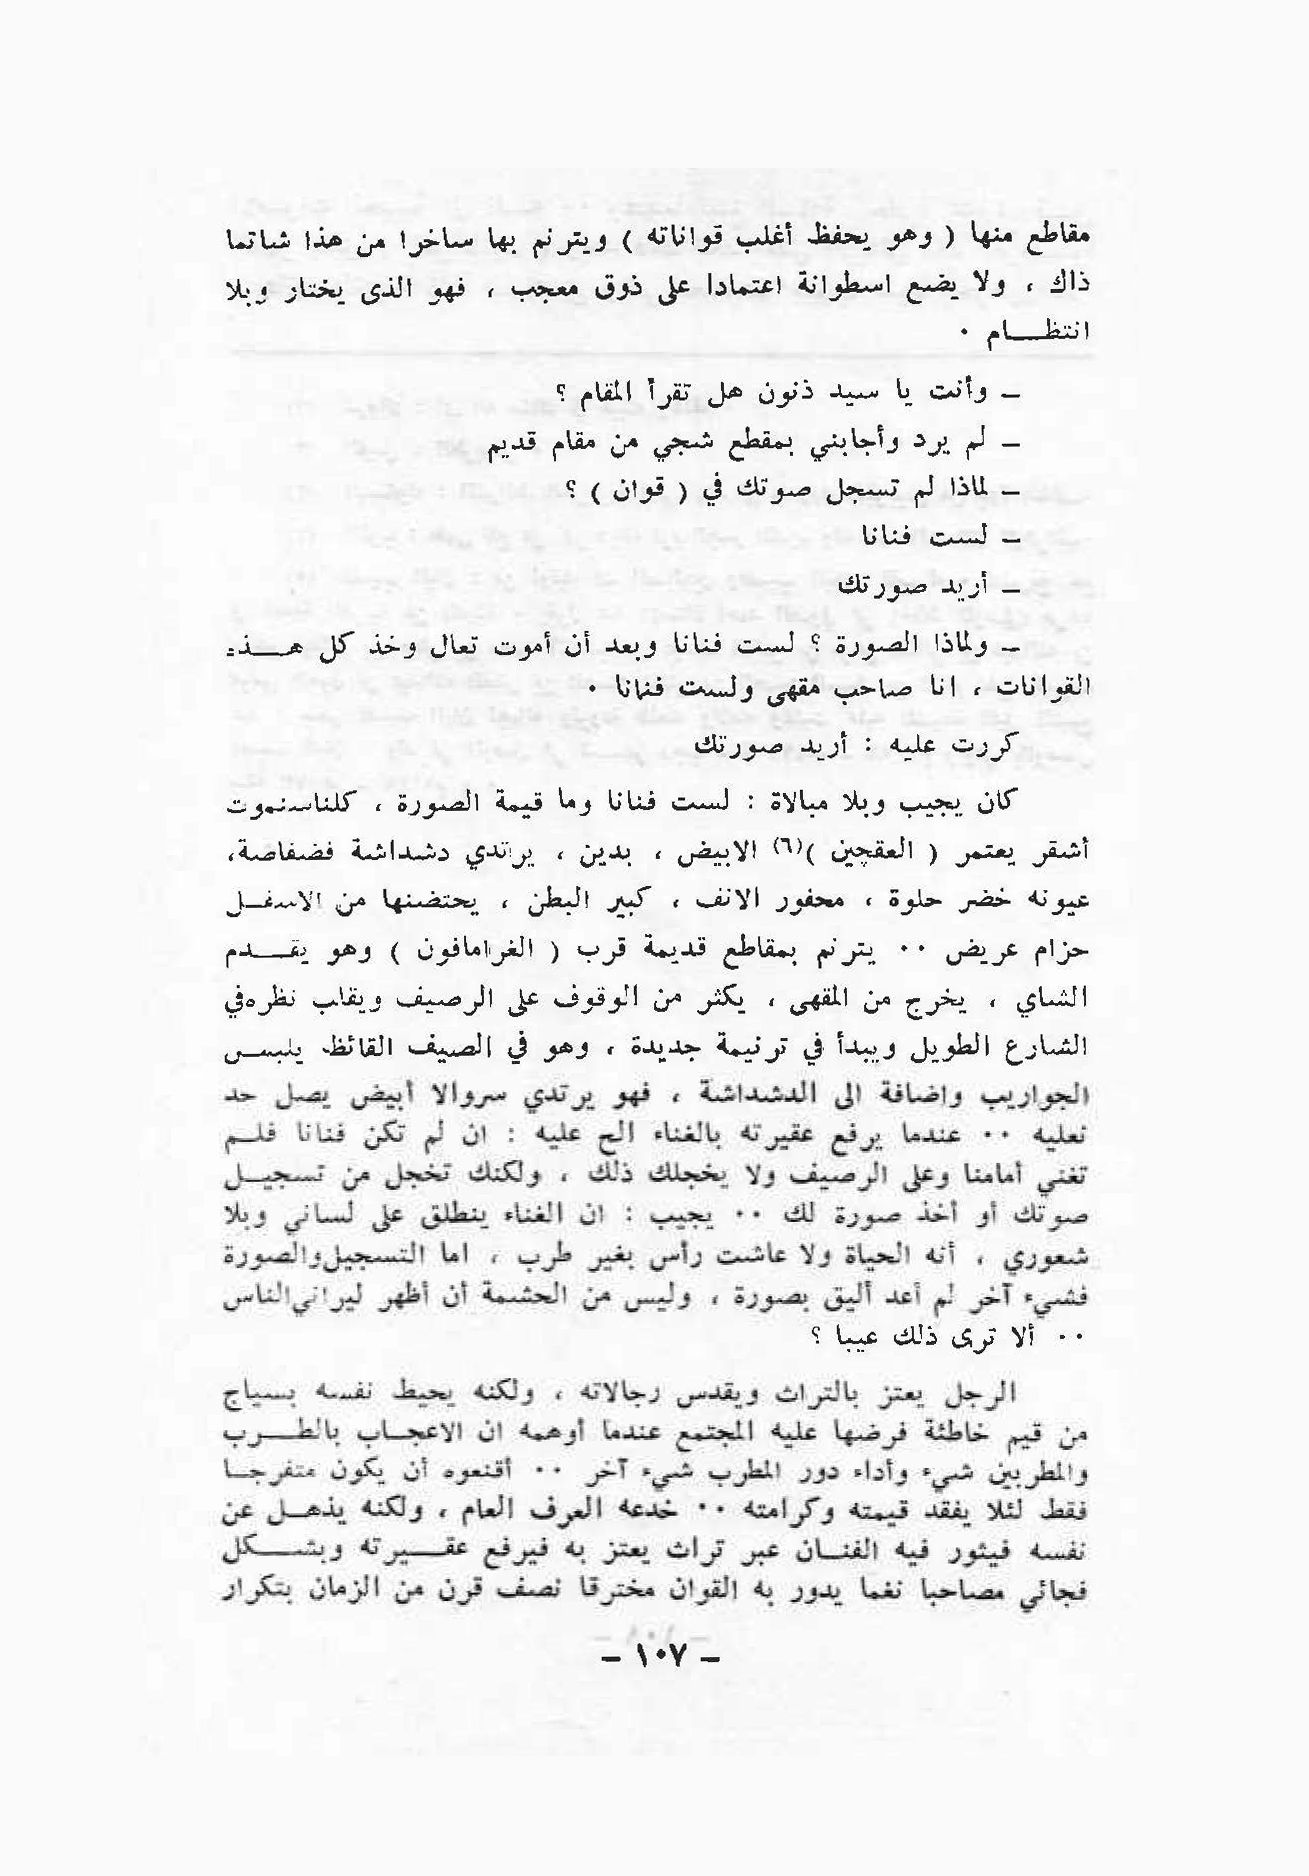 مقاطع منها ( وهو يحفظ أغلب قواناته ) ويترنم بها ساخرا من هذا شاتما
ذاك ، ولا يضع اسطوانة اعتمادا على ذوق معجب ، فهو الذى يختار وبلا
انتظــــام .
ـ وأنت يا سيد ذنون هل تقرأ المقام ؟
ـ لم يرد وأجابني بمقطع شجي من مقام قديم
ـ لماذا لم تسجل صوتك في ( قوان ) ؟
ـ لست فنانا
ـ أريد صورتك
ـ ولماذا الصورة ؟ لست فنانا وبعد أن أموت تعال وخذ كل هــــذه
القوانات ، انا صاحب مقهى ولست فنانا .
كررت عليه : أريد صورتك
كان يجيب وبلا مبالاة : لست فنانا وما قيمة الصورة ، كلناسنموت
أشقر يعتمر ( العقچين )(٦) الابيض ، بدين ، يرتدي دشداشة فضفاضة،
عيونه خضر حلوة ، محفور الانف ، كبير البطن ، يحتضنها من الاسفــل
حزام عريض .. يترنم بمقاطع قديمة قرب ( الغرامافون ) وهو يقــــدم
الشاي ، يخرج من المقهى ، يكثر من الوقوف على الرصيف ويقلب نظره‌في
الشارع الطويل ويبدأ في ترنيمة جديدة ، وهو في الصيف القائظ يلبــس
الجواريب واضافة الى الدشداشة ، فهو يرتدي سروالا أبيض يصل حد
نعليه .. عندما يرفع عقيرته بالغناء الح عليه : ان لم تكن فنانا فلــم
تغني أمامنا وعلى الرصيف ولا يخجلك ذلك ، ولكنك تخجل من تسجيــل
صوتك أو أخذ صورة لك .. يجيب : ان الغناء ينطلق على لساني وبلا
شعوري ، أنه الحياة ولا عاشت رأس بغير طرب ، اما التسجيل‌والصورة
فشيء آخر لم أعد أليق بصورة ، وليس من الحشمة أن أظهر ليراني‌الناس
.. ألا ترى ذلك عيبا ؟
الرجل يعتز بالتراث ويقدس رجالاته ، ولكنه يحيط نفسه بسياج
من قيم خاطئة فرضها عليه المجتمع عندما أوهمه ان الاعجــاب بالطـــرب
والمطربين شيء وأداء دور المطرب شيء آخر .. أقنعوه أن يكون متفرجــا
فقط لئلا يفقد قيمته وكرامته .. خدعه العرف العام ، ولكنه يذهــل عن
نفسه فيثور فيه الفنــان عبر تراث يعتز به فيرفع عقــــيرته وبشــــكل
فجائي مصاحبا نغما يدور به القوان مخترقا نصف قرن من الزمان بتكرار
ـ ١٠٧ ـ